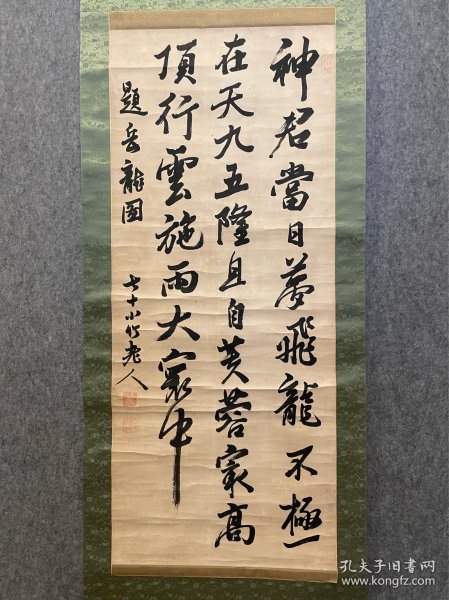 神君當日夢飛龍不極
在天九五隆且自芙蓉最高
頂行雲施雨大寰中
題岳龍圖
七十小竹老人
孔夫子旧书网
www.kongfz.com